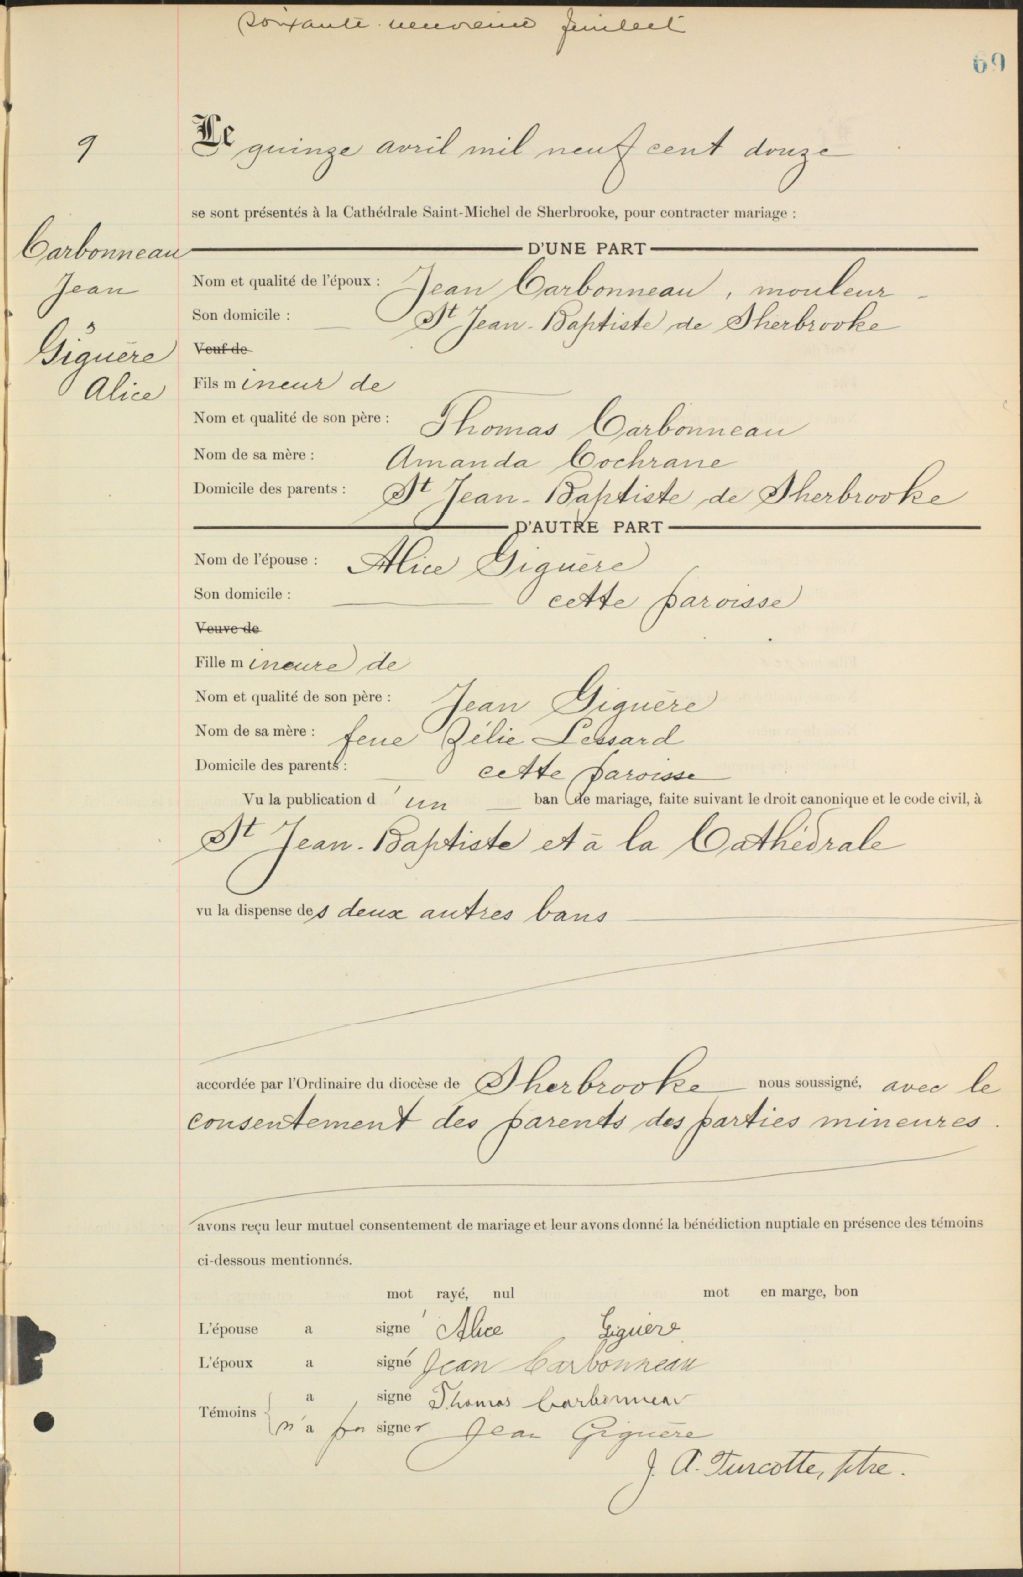 soixante-neuvième feuillet
69
9
Le quinze avril mil neuf cent douze
se sont présentés à la Cathédrale Saint-Michel de Sherbrooke, pour contracter mariage :
Carbonneau
Jean
&
Giguère
Alice
D'UNE PART
Nom et qualité de l'époux : Jean Carbonneau, mouleur
Son domicile : St Jean-Baptiste de Sherbrooke
Veuf de
Fils mineur de
Nom et qualité de son père : Thomas Carbonneau
Nom de sa mère : Amanda Cochrane
Domicile des parents : St Jean-Baptiste de Sherbrooke
D'AUTRE PART
Nom de l'épouse : Alice Giguère
Son domicile : cette paroisse
Veuve de
Fille mineure de
Nom et qualité de son père : Jean Giguère
Nom de sa mère : feue Zélie Lessard
Domicile des parents : cette paroisse
Vu la publication d'un ban de mariage, faite suivant le droit canonique et le code civil, à
St Jean-Baptiste et à la Cathédrale
vu la dispense des deux autres bans
accordée par l'Ordinaire du diocèse de Sherbrooke nous soussigné, avec le
consentement des parents des parties mineures.
avons reçu leur mutuel consentement de mariage et leur avons donné la bénédiction nuptiale en présence des témoins
ci-dessous mentionnés.
mot rayé, nul mot en marge, bon
L'épouse a signé Alice Giguère
L'époux a signé Jean Carbonneau
Témoins
a signé Thomas Carbonneau
n'a pu signer Jean Giguère
J. A. Turcotte, ptre.